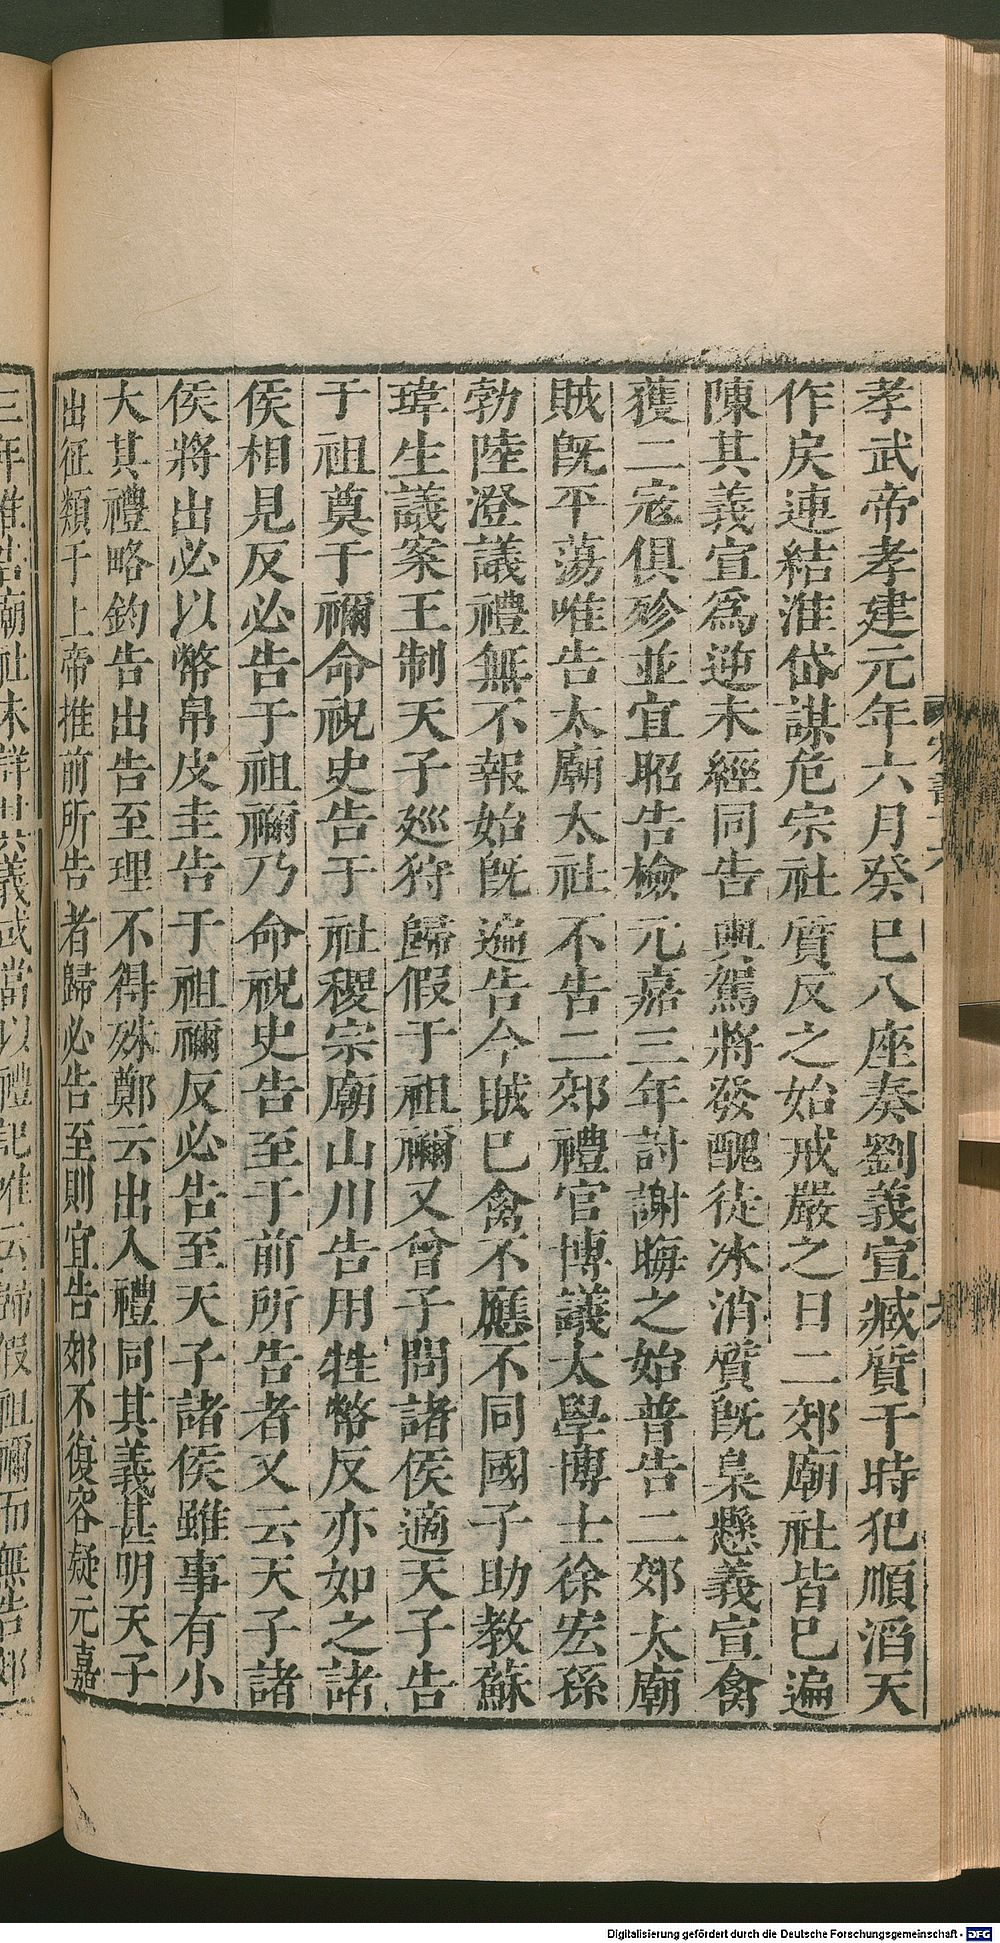 孝武帝孝建元年六月癸巳八座奏劉義宣臧質干時犯順滔天
作戾連結淮岱謀危宗社質反之始戒嚴之日二郊廟社皆已遍
陳其義宣爲逆未經同告輿駕將發醜徒冰消質既梟懸義宣禽
獲二寇俱殄並宜昭告檢元嘉三年討謝晦之始普告二郊太廟
賊既平蕩唯告太廟太社不告二郊禮官博議太學博士徐宏孫
勃陸澄議禮無不報始既遍告今賊已禽不應不同國子助教蘇
瑋生議案王制天子廵狩歸假于祖禰又曾子問諸侯適天子告
于祖奠于禰命祝史告于社稷宗廟山川告用牲幣反亦如之諸
侯相見反必告于祖禰乃命祝史告至于前所告者又云天子諸
侯將出必以幣帛皮圭告于祖禰反必告至天子諸侯雖事有小
大其禮略鈞告出告至理不得殊鄭云出入禮同其義甚明天子
出征類于上帝推前所告者歸必告至則宜告郊不復容疑元嘉
三年唯告廟社未詳其義或當以禮記唯云歸假祖禰而無告郊
Digitalisierung gefördert durch die Deutsche Forschungsgemeinschaft - DFG